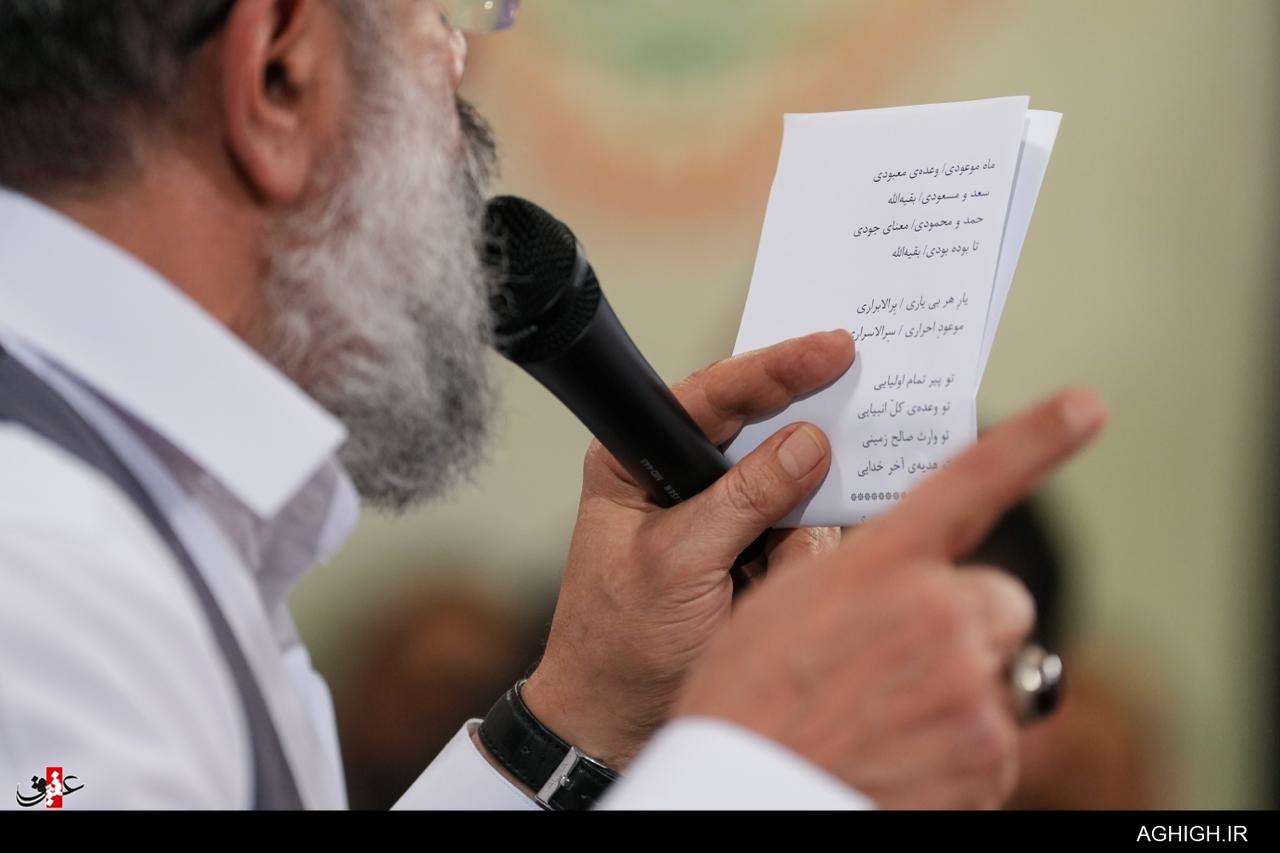 ماه موعودی/ وعده‌ی معبودی
سعد و مسعودی/ بقیه‌الله
حمد و محمودی/ معنای جودی
تا بوده بودی/ بقیه‌الله
یارِ هر بی یاری / برالابراری
موعودِ احراری / سرالاسراری
تو پیر تمام اولیایی
تو وعده‌ی کلّ انبیایی
تو وارث صالح زمینی
هدیه‌ی آخر خدایی
عقیق
AGHIGH.IR